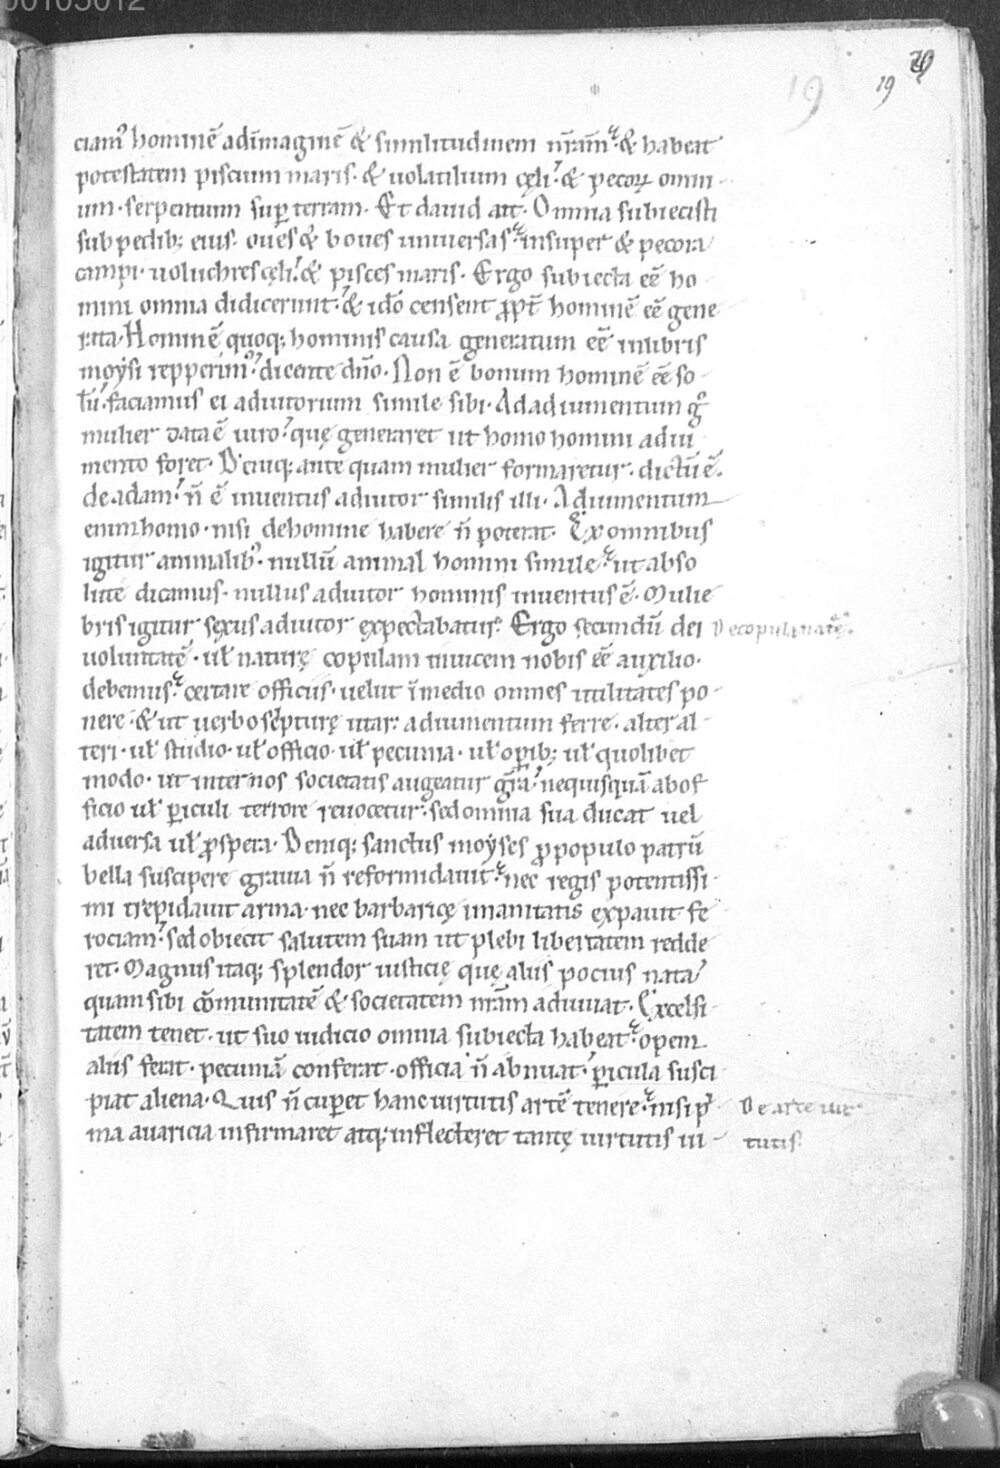 00105012
19
19
20
ciam᷒ hominē ad īmaginē & similitudinem nr̄am̄. & habeat
potestatem piscium maris. & uolatilium cęli. & pecoꝝ omni-
um. serpentium suꝑ terram. Et dauid ait. Omnia subiecisti
sub pedib; eius. oues & boues uniuersas. insuper & pecora
campi. uoluchres cęli. & pisces maris. Ergo subiecta eē ho-
mini omnia didicerunt. & idō censent ꝓpt̄ hominē eē gene-
rata. Hominē quoq; hominis causa generatum eē in libris
moẏsi repperim᷒. dicente dn̄o. Non ē bonum hominē eē so-
lū. faciamus ei adiutorium simile sibi. Ad adiumentum gͦ
mulier data ē uiro. quę generaret ut homo homini adiu-
mento foret. Deniq; ante quam mulier formaretur. dictū ē.
de adam. n̄ ē inuentus adiutor similis illi. Adiumentum
enim homo. nisi de homine habere n̄ poterat. Ex omnibus
igitur animalib᷒. nullū animal homini simile. ut abso-
lute dicamus. nullus adiutor hominis inuentus ē. Mulie-
bris igitur sexus adiutor expectabatur. Ergo secundū dei
De copula naturę.
uoluntatē. uł naturę copulam inuicem nobis eē auxilio.
debemus. certare officiis. uelut ī medio omnes utilitates po-
nere. & ut uerbo sc̄pturę utar. adiumentum ferre. alter al-
teri. uł studio. uł officio. uł pecunia. uł oꝑib; uł quolibet
modo. ut inter nos societatis augeatur gr̄a. ne quisquā ab of-
ficio uł ꝑiculi terrore reuocetur. sed omnia sua ducat uel
aduersa uł ꝓspera. Deniq; sanctus moẏses ꝓ populo patrū
bella suscipere grauia n̄ reformidauit. nec regis potentissi-
mi trepidauit arma. nec barbaricę inmanitatis expauit fe-
rociam. sed obiecit salutem suam ut plebi libertatem redde-
ret. Magnus itaq; splendor iusticię quę aliis pocius nata
quam sibi cōmunitatē & societatem nr̄am adiuuat. Excelsi-
tatem tenet. ut suo iudicio omnia subiecta habeat. opem
aliis ferat. pecuniā conferat. officia n̄ abnuat. ꝑicula susci-
piat aliena. Quis n̄ cuꝑet hanc uirtutis artē tenere. nisi pⁱ-
De arte uir-
ma auaricia infirmaret atq; inflecteret tantę uirtutis ui-
tutis.